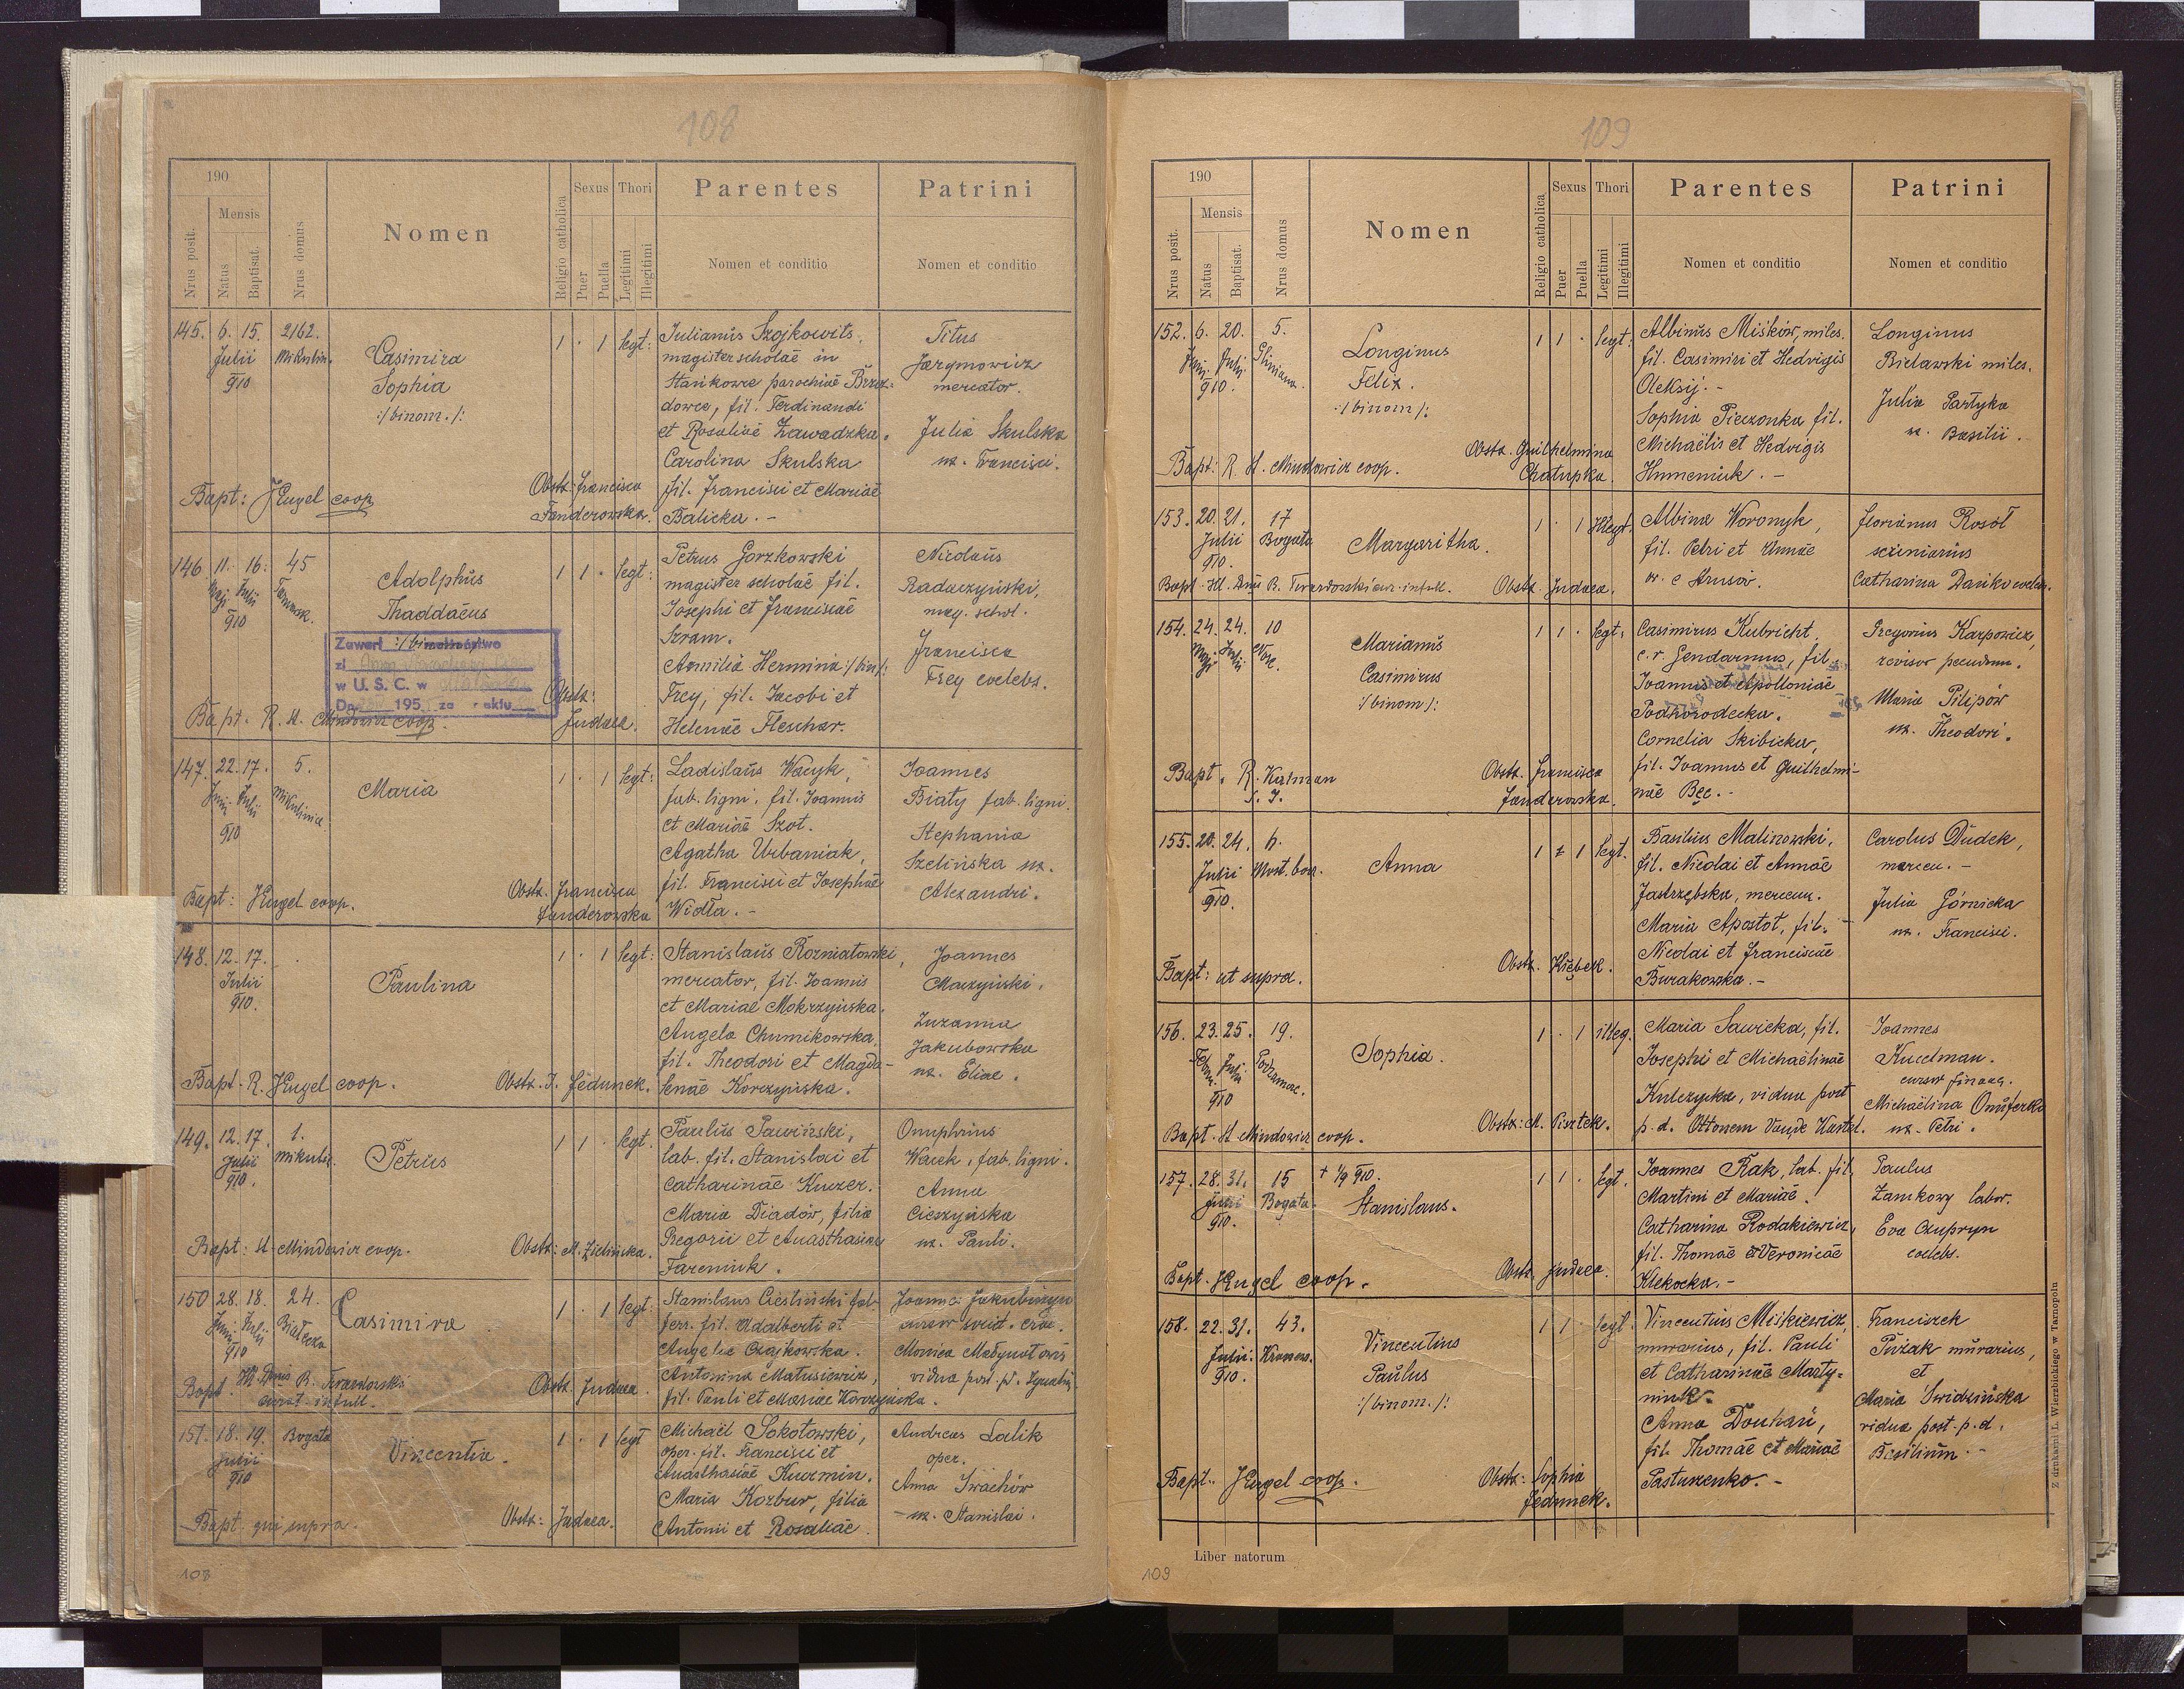 108
190
Nrus posit.
Mensis
Natus
Baptisat.
Nrus domus
Nomen
Religio catholica
Sexus
Puer
Puella
Thori
Legitimi
Illegitimi
Parentes
Nomen et conditio
Patrini
Nomen et conditio
145. 6. 15. 2162. Casimira 1 · 1 legt: Julianus Szojkowits, Titus
Julii Mikulin. Sophia magister scholae in Jarymowicz
910 :/binom./: Stankowce parochiae Brzoz- mercator.
dowce, fil. Ferdinandi
et Rosaliae Zawadzka. Julia Skulska
Carolina Skulska ux. Francisci.
Bapt: JEngel coop Obstx. Francisca fil. Francisci et Mariae
Fanderowska. Balicka. -
146. 11. 16. 45 Adolphus 1 1 · legt: Petrus Gorzkowski Nicolaus
Maji Julii Tarnowsk. Thaddaeus magister scholae fil. Radaczyński,
910 :/binom Josephi et Franciscae mag. schol.
Szram. Francisca
Zawarł małżeństwo
w U. S. C. w
Dn. 195 za aktu
Aemilia Hermina :/bin/: Frey coelebs.
Obstx: Frey, fil. Jacobi et
Bapt. R. H. Mindowicz coop. Judaea. Helenae Fleschar.
147. 22. 17. 5. Maria 1 · 1 legt: Ladislaus Wacyk, Joannes
Junii Julii Mikulince fab. ligni, fil. Joannis Biały fab. ligni.
910 et Mariae Szot. Stephania
Agatha Urbaniak, Szelińska ux.
Bapt: JEngel coop. Obstx. Francisca fil. Francisci et Josephae Alexandri.
Fanderowska Widła. -
148. 12. 17. · Paulina 1 · 1 legt: Stanislaus Rozniatowski, Joannes
Julii mercator, fil. Joannis Maczyński,
910. et Mariae Mokrzyńska. Zuzanna
Angela Chumikowska, Jakubowska
fil. Theodori et Magda- ux. Eliae.
Bapt. R. JEngel coop. Obstx. J. Fedunek. lenae Korczyńska.
149. 12. 17. 1. Petrus 1 1 · legt: Paulus Sawiński, Onuphrius
Julii Mikulin. lab. fil. Stanislai et Wacek, fab. ligni.
910. Catharinae Kuczer. Anna
Maria Diadów, filia Cieszyńska
Bapt: H. Mindowicz coop. Obstx: M. Zielińska. Gregorii et Anasthasiae ux. Pauli.
Fareniuk.
150 28. 18. 24. Casimira 1 · 1 legt: Stanislaus Ciesliński fab.
Junii Julii Białecka ferr. fil. Adalberti et
910 Angela Czajkowska. Monica
Bapt. Ill. Dnus R. Twardowski Obstx. Judaea. Antonina Matusiewicz, vidua post. p.
curat. inful. fil. Pauli et Mariae Korczyńska.
151. 18. 19. Bogata Vincentia. 1 · 1 legt Michaël Sokołowski, Andreas Lalik
Julii oper. fil. Francisci et oper.
910 Anasthasiae Kuczmin. Anna Iwachów
Maria Kozbur, filia - ux. Stanislai.
Bapt. qui supra. Obstx: Judaea. Antonii et Rosaliae.
108
109
190
Nrus posit.
Mensis
Natus
Baptisat.
Nrus domus
Nomen
Religio catholica
Sexus
Puer
Puella
Thori
Legitimi
Illegitimi
Parentes
Nomen et conditio
Patrini
Nomen et conditio
152. 6. 20. 5. Longinus 1 1 · legt: Albinus Miśków, miles. Longinus
Junii Julii Gliniana. Felix. fil. Casimiri et Hedvigis Bielawski miles.
910. :/binom/: Oleksij. - Julia Partyka
Sophia Pieczonka fil. ux. Basilii.
Obstx. Guilhelmina Michaëlis et Hedvigis
Bapt: R. H. Mindowicz coop. Chałupka. Humeniuk. -
153. 20. 21. 17 Margaritha. 1 · 1 Illegt. Albina Woronyk, Florianus Rosół
Julii Bogata fil. Petri et Annae scriniarius
910. or. e Strusów. Catharina Dańko coelebs.
Bapt. Ill. Dnus R. Twardowski cur. infull. Obstx. Judaea.
154. 24. 24. 10 Marianus 1 1 · legt: Casimirus Kubricht, Gregorius Karpowicz,
Maji Julii Casimirus c. r. Gendarmus, fil. revisor pecudum.
:/binom/: Joannis et Apolloniae Maria Pilipów
Podhorodecka. ux. Theodori.
Cornelia Skibicka,
Bapt. R. Kałman Obstx. Francisca fil. Joannis et Guilhelmi-
S. J. Fanderowska. nae Bęc. -
155. 20. 24. 6. Anna 1 1 legt. Basilius Malinowski, Carolus Dudek,
Julii fil. Nicolai et Annae mercen. -
910. Jastrzębska, mercen. Julia Górnicka
Maria Apostoł, fil. ux. Francisci.
Obstx. Kłębek. Nicolai et Franciscae
Bapt: ut supra. Burakowska. -
156. 23. 25. 19. Sophia. 1 · 1 illeg. Maria Sawicka, fil. Joannes
Julii Podzamcze. Josephi et Michaëlinae Kucelman.
910 Kulczycka, vidua post cursor finanz.
Obstx: M. Pisztek. p. d. Ottonem Michaëlina Onuferko
Bapt. H. Mindowicz coop. ux. Petri.
157. 28. 31. 15 + 1/9 910. 1 1 · legt. Joannes Rak, lab. fil. Paulus
Julii Bogata. Stanislaus. Martini et Mariae. Zamkowy labor.
910. Catharina Rodakiewicz, Eva Czupryn
fil. Thomae et Veronicae coelebs.
Bapt. JEngel coop. Obstx. Judaea. Klekocka. -
158. 22. 31. 43. Vincentius 1 1 · legt. Vincentius Miśkiewicz, Franciszek
Julii Kranow. Paulus murarius, fil. Pauli Puzak murarius,
910. :/binom./: et Catharinae Marty- et
niuk. Maria Swidzińska
Anna Douhań, vidua post. p. d.
fil. Thomae et Mariae Basilium. -
Bapt. JEngel coop. Obstx: Sophia Pastuszenko. -
Fedunek.
Liber natorum
Z drukarni L. Wierzbickiego w Tarnopolu
109